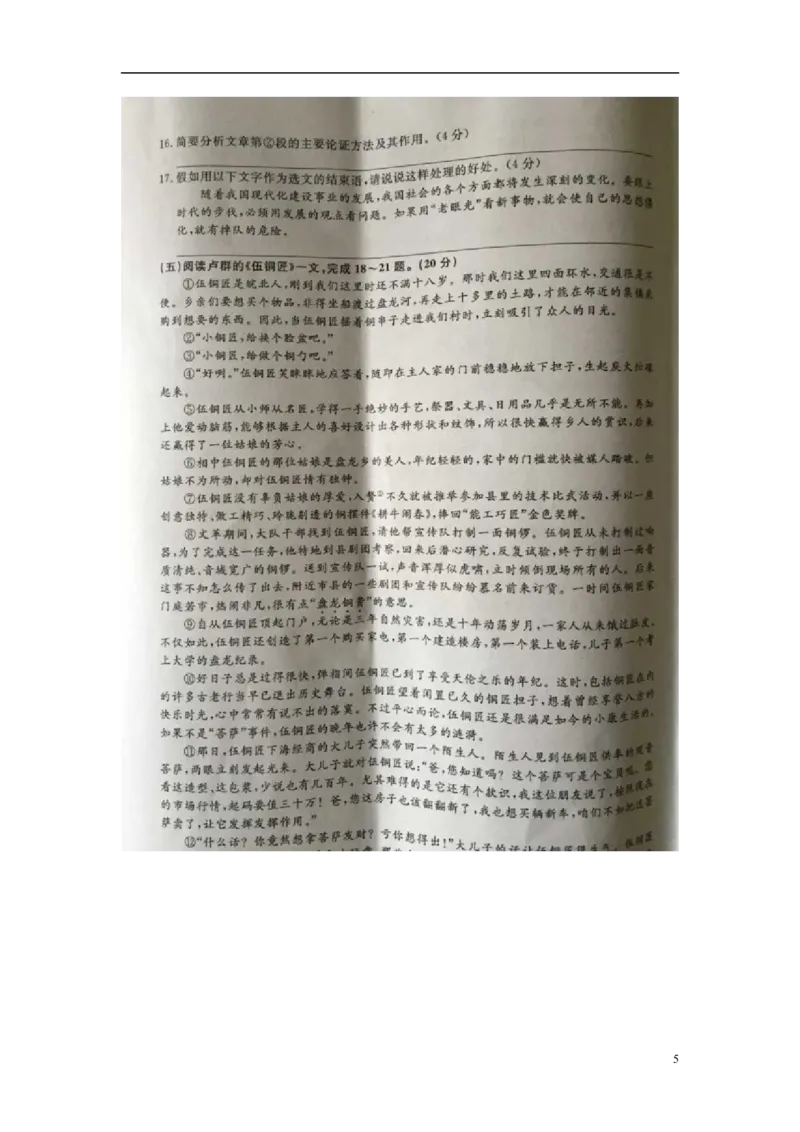 16.简要分析文章第②段的主要论证方法及其作用。(4分)
17.假如用以下文字作为选文的结束语,请说说这样处理的好处。(4分)
随着我国现代化建设事业的发展,我国社会的各个方面都将发生深刻的变化。要跟上
时代的步伐,必须用发展的观点看问题。如果用“老眼光”看新事物,就会使自己的思想僵
化,就有掉队的危险。
(五)阅读卢群的《伍铜匠》一文,完成18~21题。(20分)
①伍铜匠是皖北人,刚到我们这里时还不满十八岁。那时我们这里四面环水,交通很是不
便。乡亲们要想买个物品,非得坐船渡过盘龙河,再走上十多里的土路,才能在邻近的集镇
购到想要的东西。因此,当伍铜匠摇着铜串子走进我们村时,立刻吸引了众人的目光。
②“小铜匠,给接个脸盆吧。”
③“小铜匠,给做个铜勺吧。”
④“好咧。”伍铜匠笑眯眯地应答着,随即在主人家的门前稳稳地放下担子,生起炭火
起来。
⑤伍铜匠从小师从名匠,学得一手绝妙的手艺,祭器、文具、日用品几乎是无所不能。再加
上他爱动脑筋,能够根据主人的喜好设计出各种形状和纹饰,所以很快赢得乡人的赏识,后来
还赢得了一位姑娘的芳心。
⑥相中伍铜匠的那位姑娘是盘龙乡的美人,年纪轻轻的,家中的门槛就快被媒人踏破。但
姑娘不为所动,却对伍铜匠情有独钟。
⑦伍铜匠没有辜负姑娘的厚爱,入赘①不久就被推举参加县里的技术比武活动,并以一座
创意独特、做工精巧、玲珑剔透的铜摆件《耕牛闹春》,捧回“能工巧匠”金色奖牌。
⑧文革期间,大队干部找到伍铜匠,请他帮宣传队打制一面铜锣。伍铜匠从未打制过响
器,为了完成这一任务,他特地到县剧团考察,回来后潜心研究,反复试验,终于打制出一面音
质清纯、音域宽广的铜锣。送到宣传队一试,声音浑厚似虎啸,立时倾倒现场所有的人。后来
这事不知怎么传了出去,附近市县的一些剧团和宣传队纷纷慕名前来订货。一时间伍铜匠家
门庭若市,热闹非凡,很有点“盘龙铜贵”的意思。
⑨自从伍铜匠顶起门户,无论是三年自然灾害,还是十年动荡岁月,一家人从未饿过肚皮。
不仅如此,伍铜匠还创造了第一个购买家电,第一个建造楼房,第一个装上电话,儿子第一个考
上大学的盘龙纪录。
⑩好日子总是过得很快,弹指间伍铜匠已到了享受天伦之乐的年纪。这时,包括铜匠在内
的许多古老行当早已退出历史舞台。伍铜匠望着闲置已久的铜匠担子,想着曾经享誉八方的
快乐时光,心中常常有说不出的落寞。不过平心而论,伍铜匠还是很满足如今的小康生活的,
如果不是“菩萨”事件,伍铜匠的晚年也许不会有太多的涟漪。
⑪那日,伍铜匠下海经商的大儿子突然带回一个陌生人。陌生人见到伍铜匠供奉的观音
菩萨,两眼立刻发起光来。大儿子就对伍铜匠说:“爸,您知道吗?这个菩萨可是个宝贝呢。您
看这造型、这包浆,少说也有几百年。尤其难得的是它还有个款识,我这位朋友说了,按照现在
的市场行情,起码要值三十万!爸,您这房子也该翻翻新了,我也想买辆新车,咱们不如把这菩
萨卖了,让它发挥发挥作用。”
⑫“什么话?你竟然想拿菩萨发财?亏你想得出!”大儿子的话让伍铜匠很生气。伍铜匠
5